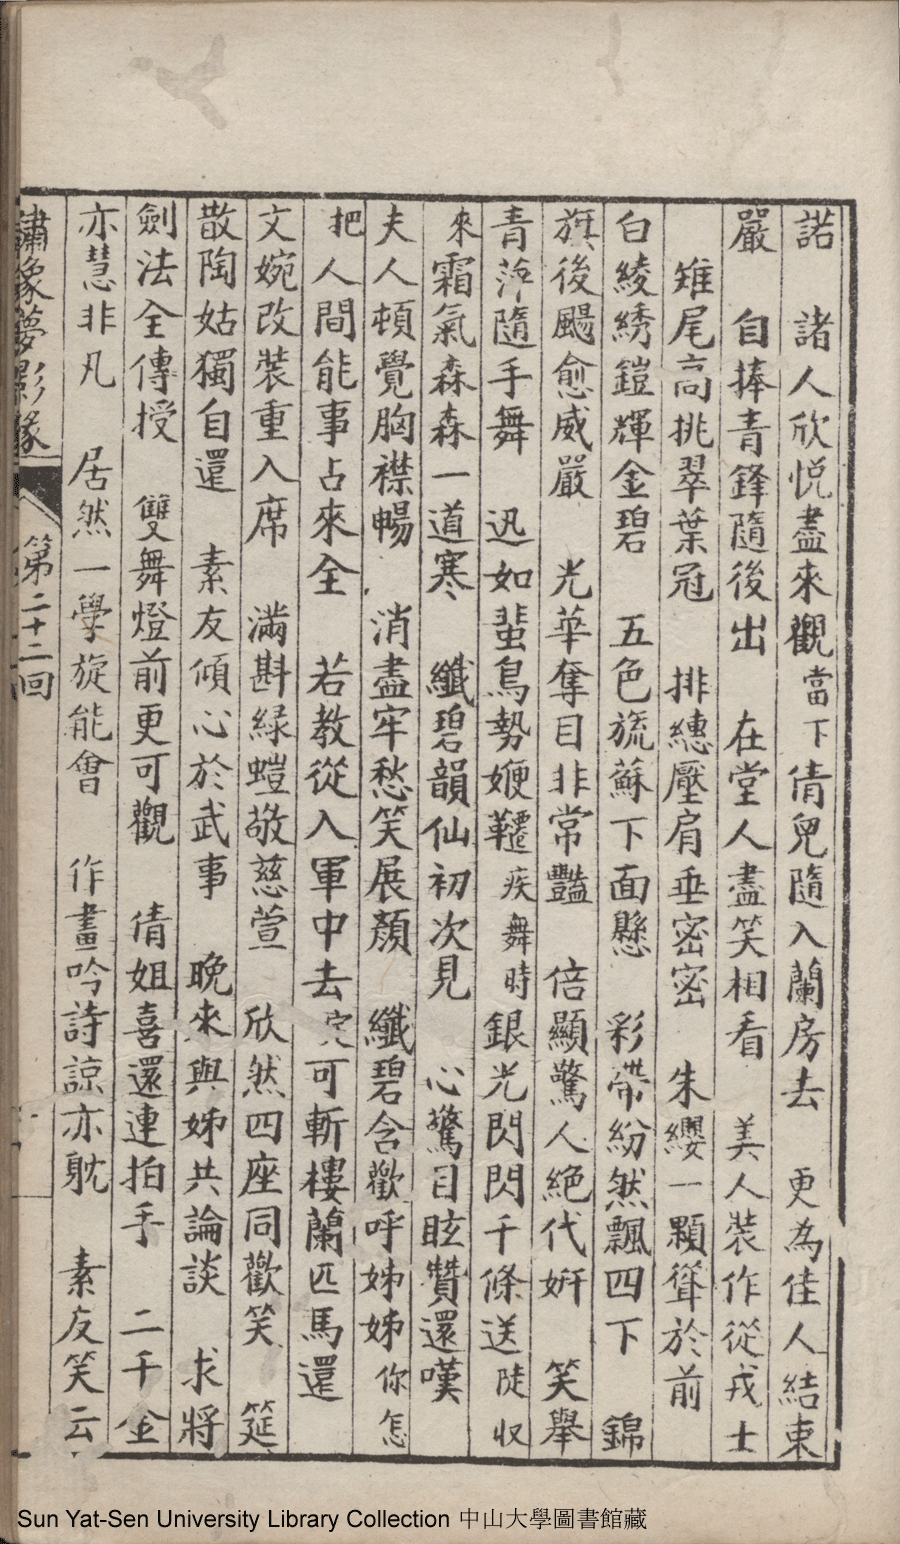 諾　諸人欣悅盡來觀當下倩兒隨入蘭房去　更為佳人結束
嚴　自捧青鋒隨後出　在堂人盡笑相看　美人裝作從戎士
雉尾高挑翠葉冠　排繐壓肩垂密密　朱纓一顆聳於前
白綾綉鎧輝金碧　五色旒蘇下面懸　彩帶紛然飄四下　錦
旗後颺愈威嚴　光華奪目非常豔　倍顯驚人絕代妍　笑舉
青萍隨手舞　迅如蜚鳥勢㛹䙴疾舞時銀光閃閃千條送陡收
來霜氣森森一道寒　纖碧韻仙初次見　心驚目眩贊還嘆
夫人頓覺胸襟暢　消盡牢愁笑展顏　纖碧含歡呼姊姊你怎
把人間能事占來全　若教從入軍中去定可斬樓蘭匹馬還
文婉改裝重入席　滿斟綠螘敬慈萱　欣然四座同歡笑　筵
散陶姑獨自還　素友傾心於武事　晚來與姊共論談　求將
劍法全傳授　雙舞燈前更可觀　倩姐喜還連拍手　二千金
亦慧非凡　居然一學旋能會　作畫吟詩諒亦躭　素友笑云
繡像夢影緣　第二十二回
Sun Yat-Sen University Library Collection 中山大學圖書館藏